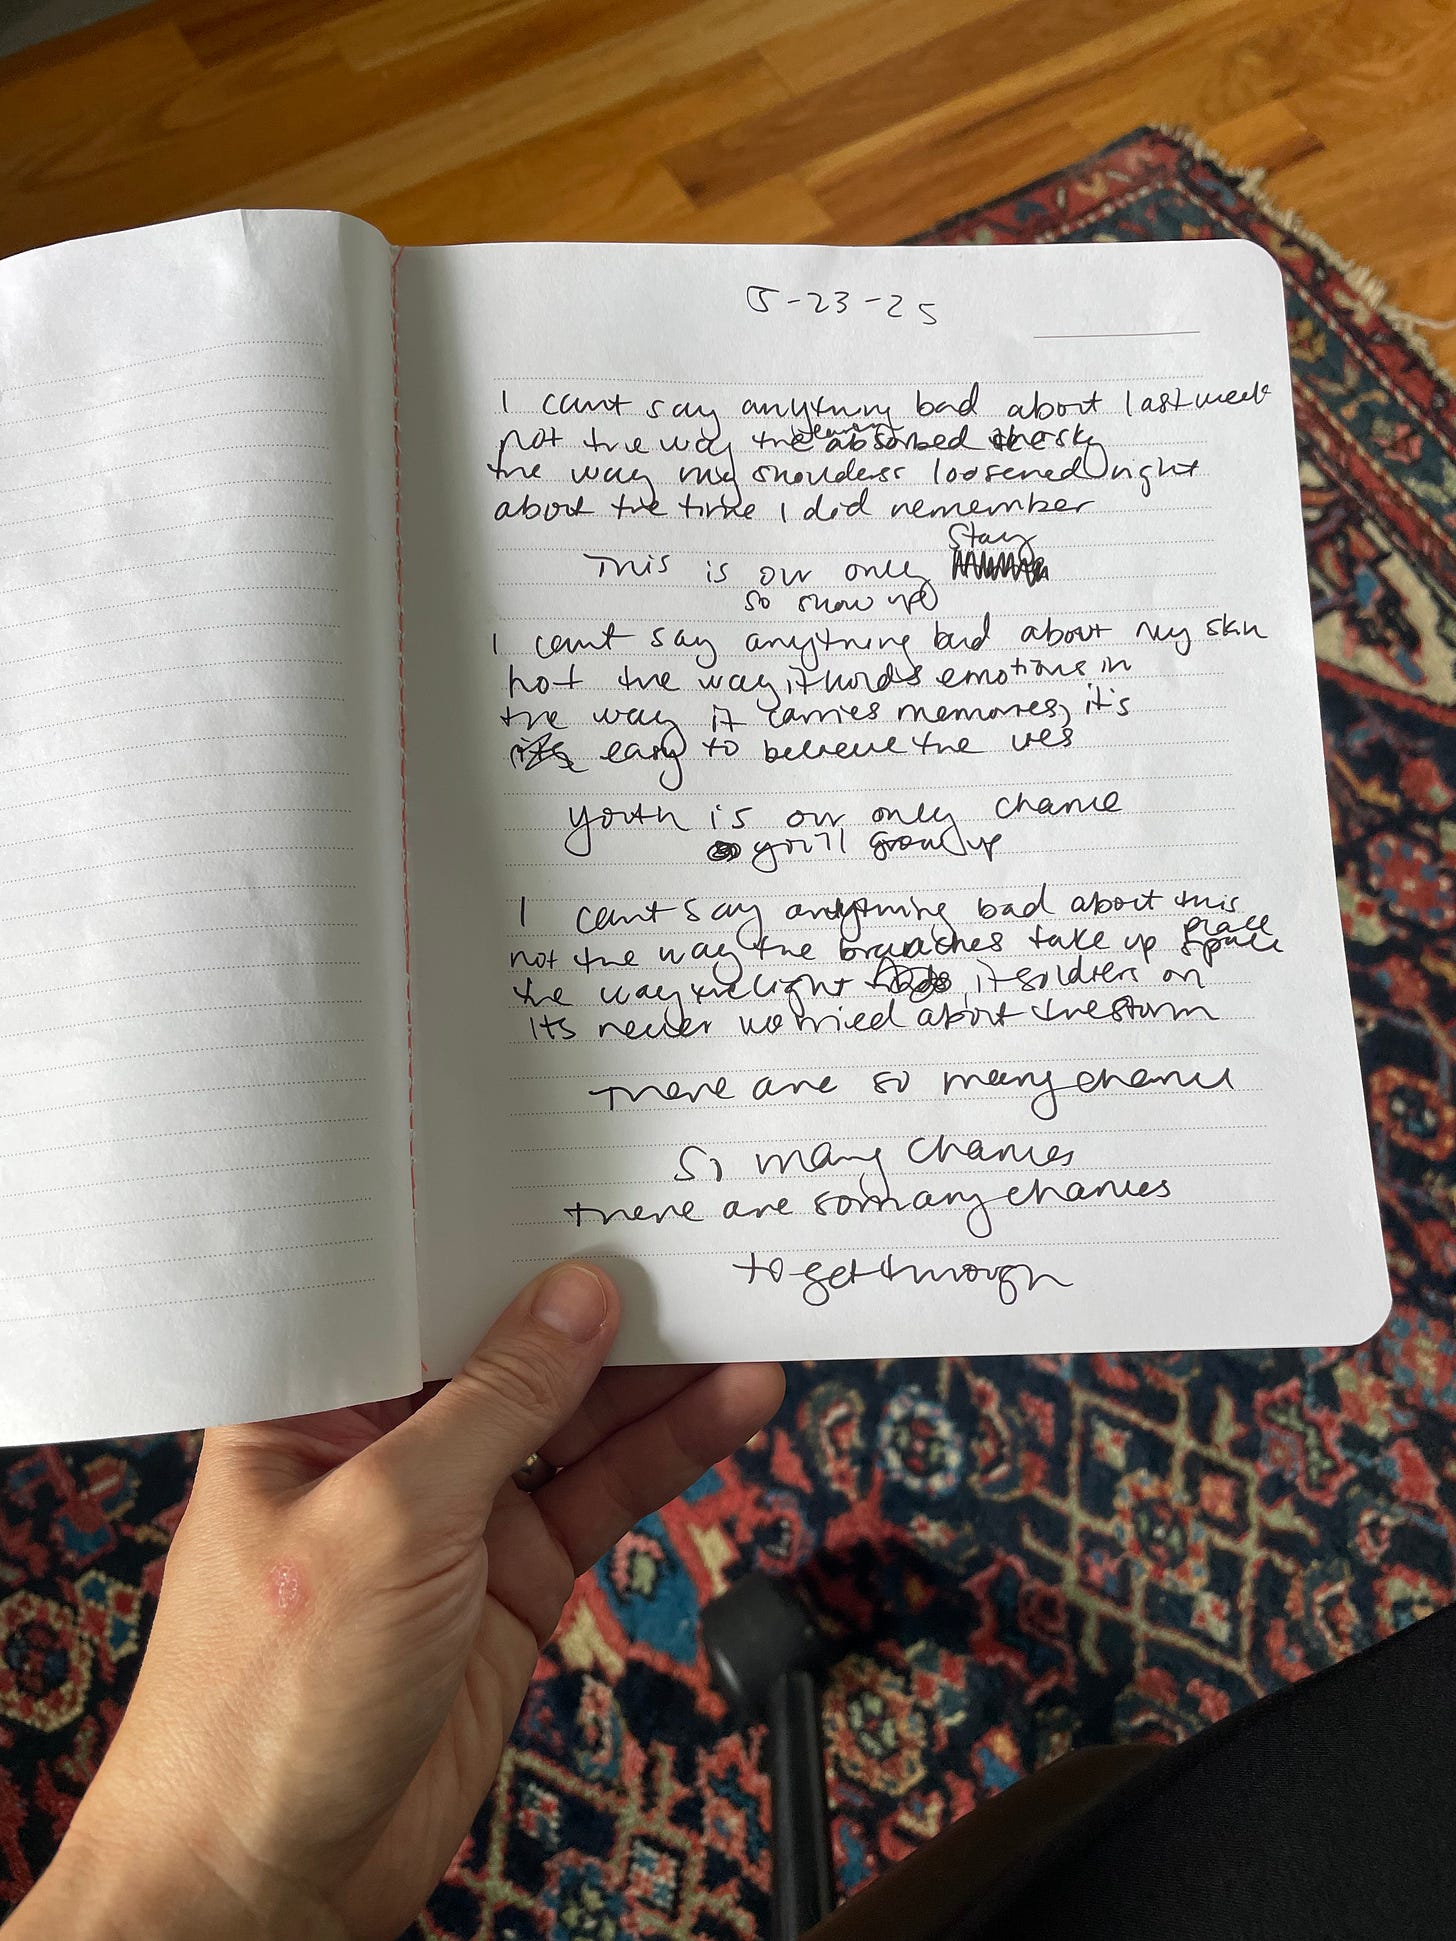 5-23-25
I cant say anything bad about last week
not the way the absorbed the sky
the way my shoulders loosened right
about the time I did remember
Stay
This is our only
so show up
I cant say anything bad about my skin
not the way it holds emotions in
the way it carries memories, it's
easy to believe the lies
Youth is our only chance
you'll grow up
I cant say anything bad about this
place
not the way the branches take up space
the way the light it soldiers on
Its never worried about the storm
There are so many chances
So many chances
there are so many chances
to get through